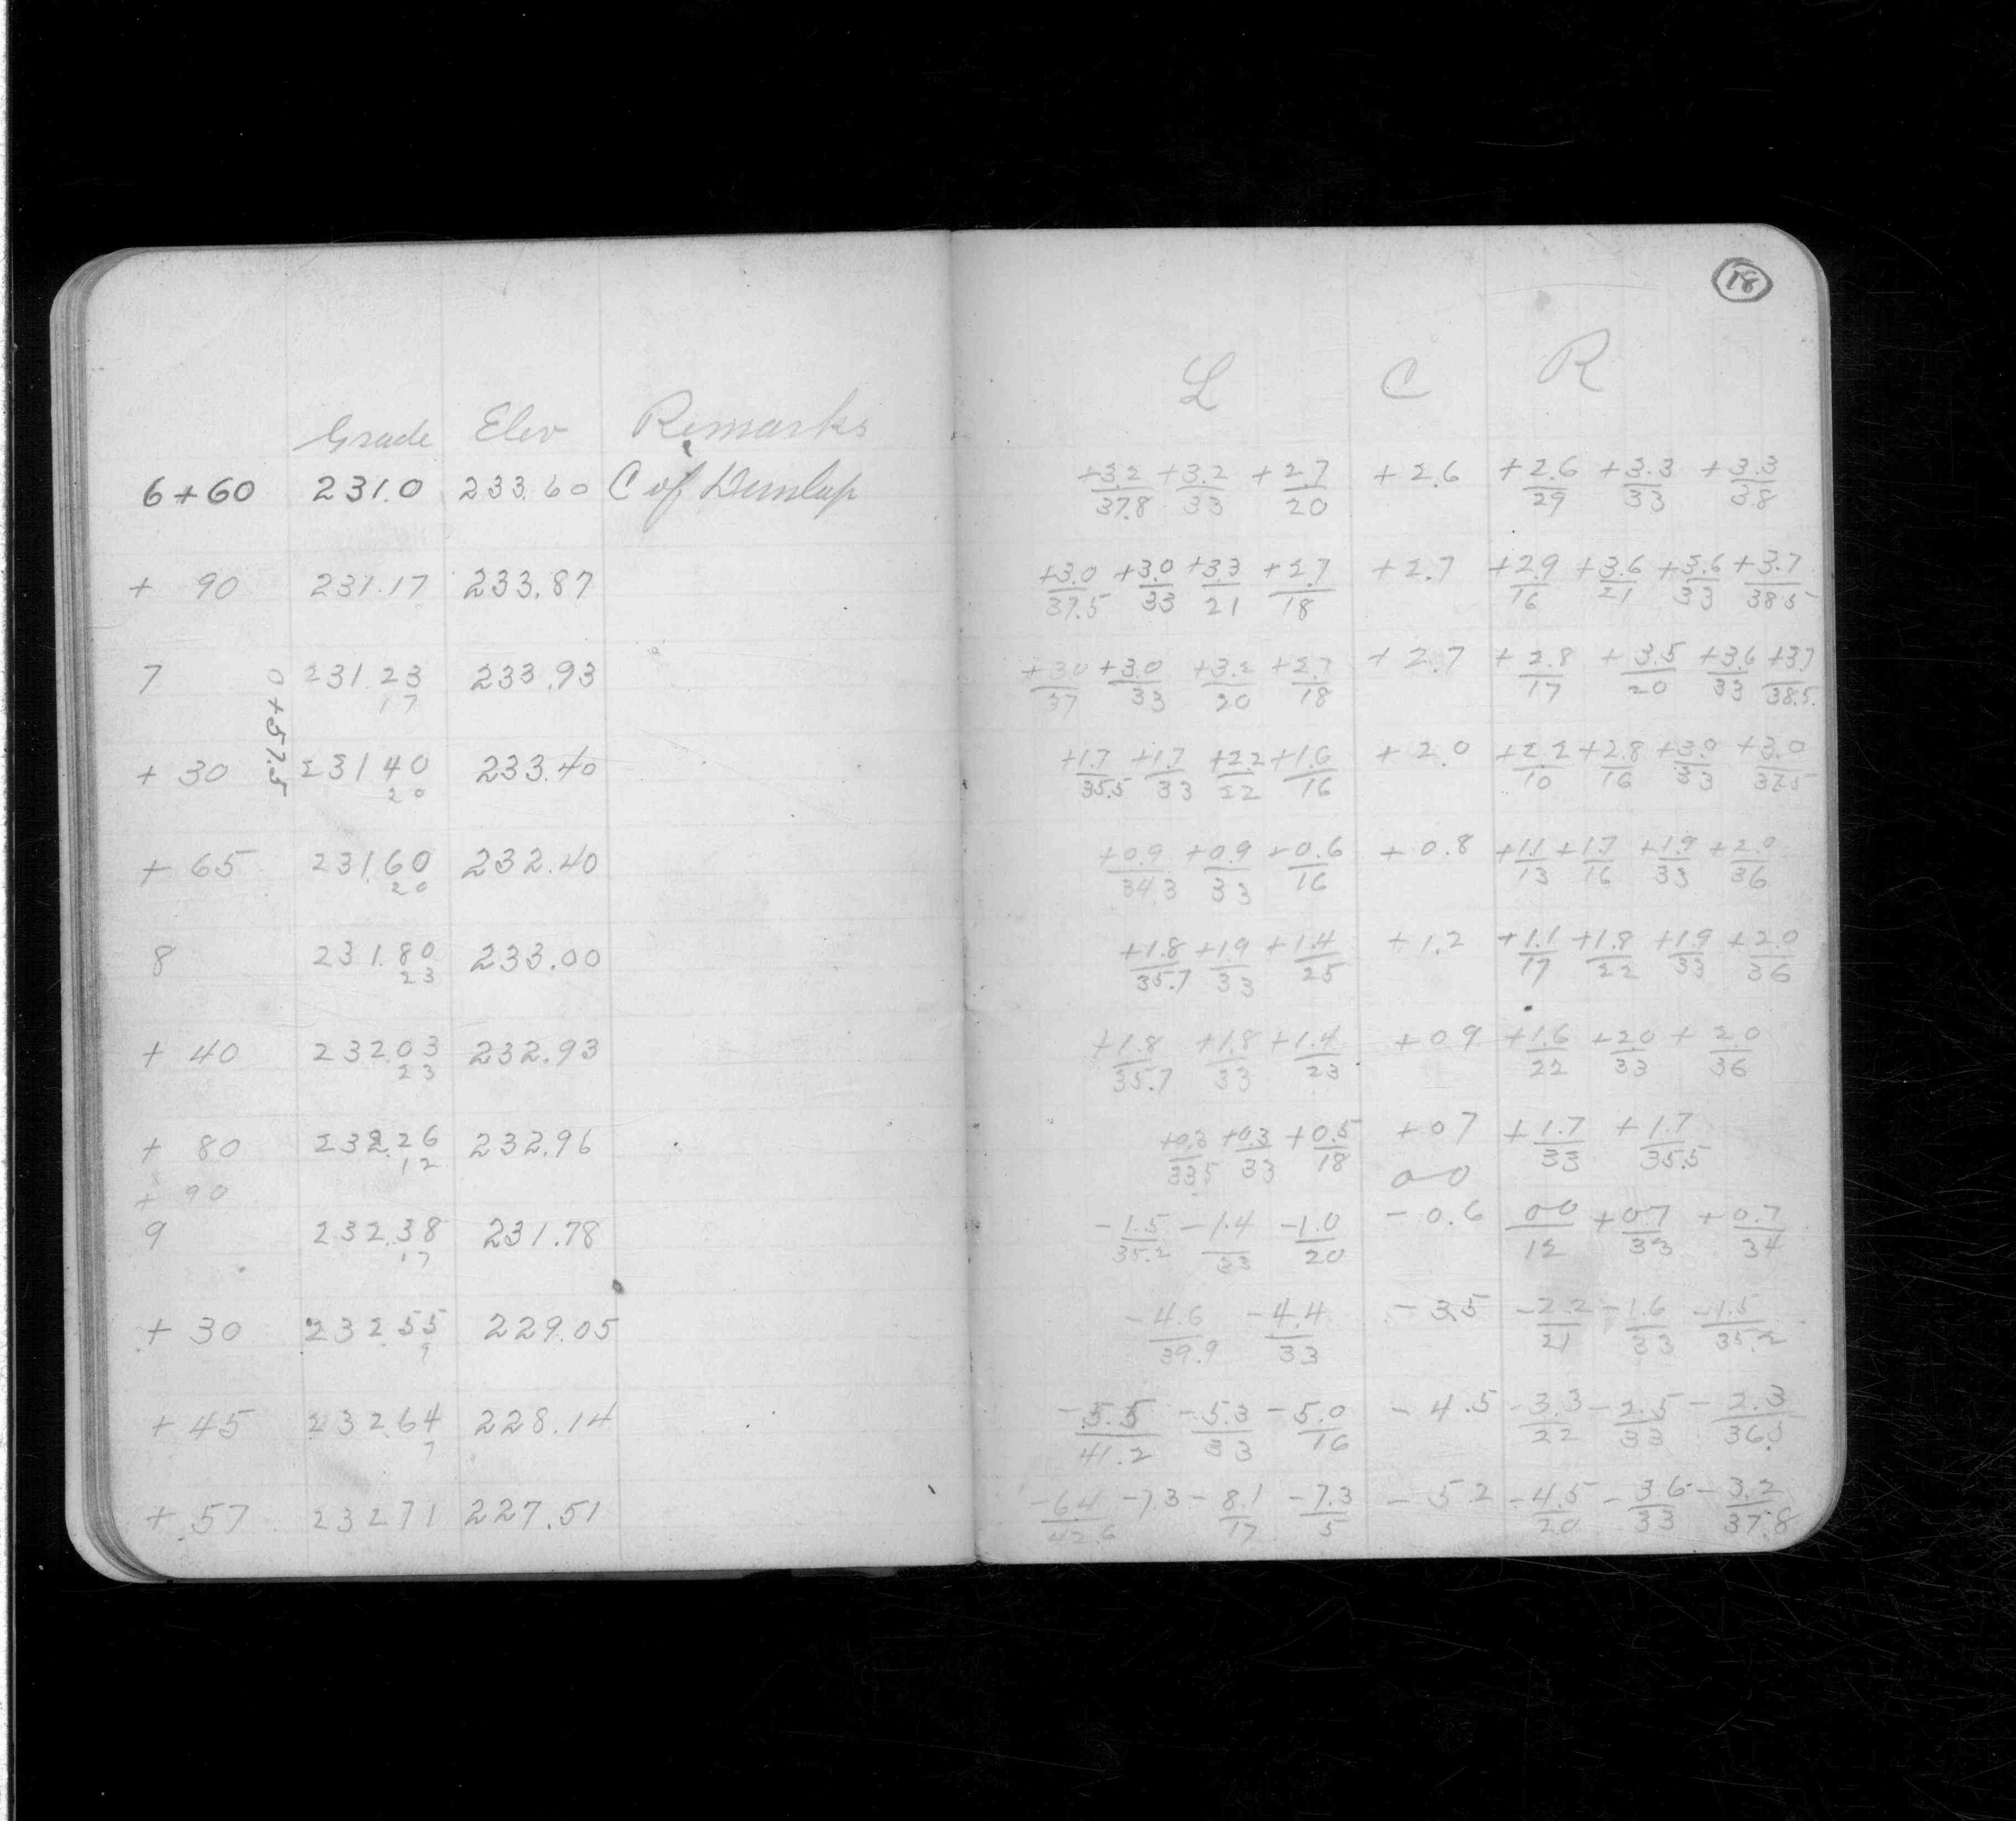 18
L C R
Grade Elev Remarks
6+60 231.0 233.60 C of Dunlap +3.2/37.8 +3.2/33 +2.7/20 +2.6 +2.6/29 +3.3/33 +3.3/38
+ 90 231.17 233.87 +3.0/37.5 +3.0/33 +3.3/21 +2.7/18 +2.7 +2.9/16 +3.6/21 +3.6/33 +3.7/38.5
7 231.23 233.93 +3.0/37 +3.0/33 +3.2/20 +2.7/18 +2.7 +2.8/17 +3.5/20 +3.6/33 +3.7/38.5
17
0+57.5
+ 30 231.40 233.40 +1.7/35.5 +1.7/33 +2.2/22 +1.6/16 +2.0 +2.2/10 +2.8/16 +3.0/33 +3.0/37.5
20
+ 65 231.60 232.40 +0.9/34.3 +0.9/33 +0.6/16 +0.8 +1.1/13 +1.7/16 +1.9/33 +2.0/36
20
8 231.80 233.00 +1.8/35.7 +1.9/33 +1.4/25 +1.2 +1.1/17 +1.8/22 +1.9/33 +2.0/36
23
+ 40 232.03 232.93 +1.8/35.7 +1.8/33 +1.4/23 +0.9 +1.6/22 +2.0/33 +2.0/36
23
+ 80 232.26 232.96 +0.3/33.5 +0.3/33 +0.5/18 +0.7 +1.7/33 +1.7/35.5
12
+ 90 0-0
9 232.38 231.78 -1.5/35.2 -1.4/33 -1.0/20 -0.6 00/12 +0.7/33 +0.7/34
17
+ 30 232.55 229.05 -4.6/39.9 -4.4/33 -3.5 -2.2/21 -1.6/33 -1.5/35.2
9
+ 45 232.64 228.14 -5.5/41.2 -5.3/33 -5.0/16 -4.5 -3.3/22 -2.5/33 -2.3/36.5
7
+ 57 232.71 227.51 -6.4/42.6 -7.3 -8.1/17 -7.3/5 -5.2 -4.5/20 -3.6/33 -3.2/37.8